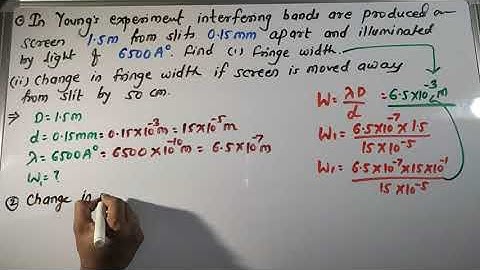 Q In Young's experiment interfering bands are produced on
screen 1.5m from slits 0.15mm apart and illuminated
by light of 6500A°. Find (i) fringe width.
(ii) change in fringe width if screen is moved away
from slit by 50 cm.
⇒ D = 1.5m
d = 0.15mm = 0.15×10⁻³m = 15×10⁻⁵m
λ = 6500A° = 6500×10⁻¹⁰m = 6.5×10⁻⁷m
W₁ = ?
② Change in
W = λD/d = 6.5×10⁻³m
W₁ = 6.5×10⁻⁷×1.5/15×10⁻⁵
W₁ = 6.5×10⁻⁷×15×10⁻¹/15×10⁻⁵